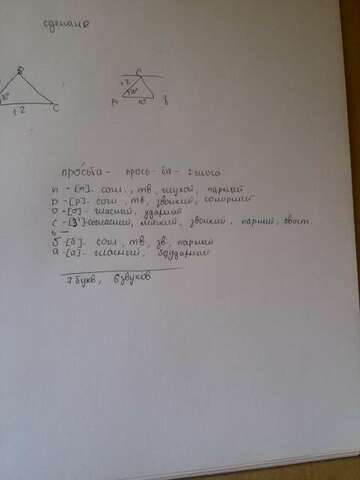 сделано
B
C
C
A
B
просьба - прось-ба - 2 слога
п - [п]- согл., тв, глухой, парный
р - [р]- согл., тв, звонкий, сонорный
о - [о]- гласный, ударный
с - [з'] согласный, мягкий, звонкий, парный, свист,
ь —
б - [б]. согл., тв, зв, парный
а - [а]- гласный, безударный
7 букв, 6 звуков